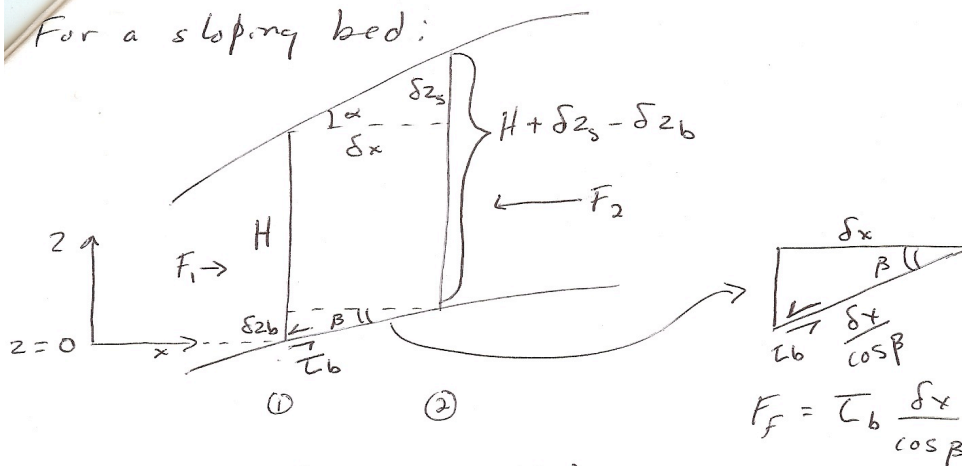 For a sloping bed:
δz_s
α
δx
H + δz_s - δz_b
F_2
H
z
F_1
δx
β
δz_b
β
z = 0
x
τ_b
τ_b
δx/cosβ
① ②
F_f = τ_b δx/cosβ